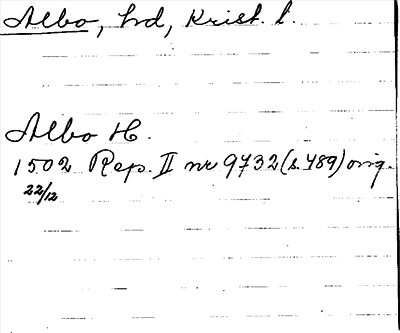 Albo, hd, Krist. l.
Albo H.
1502 Rep. II nr 9732 (s. 489) orig.
22/12